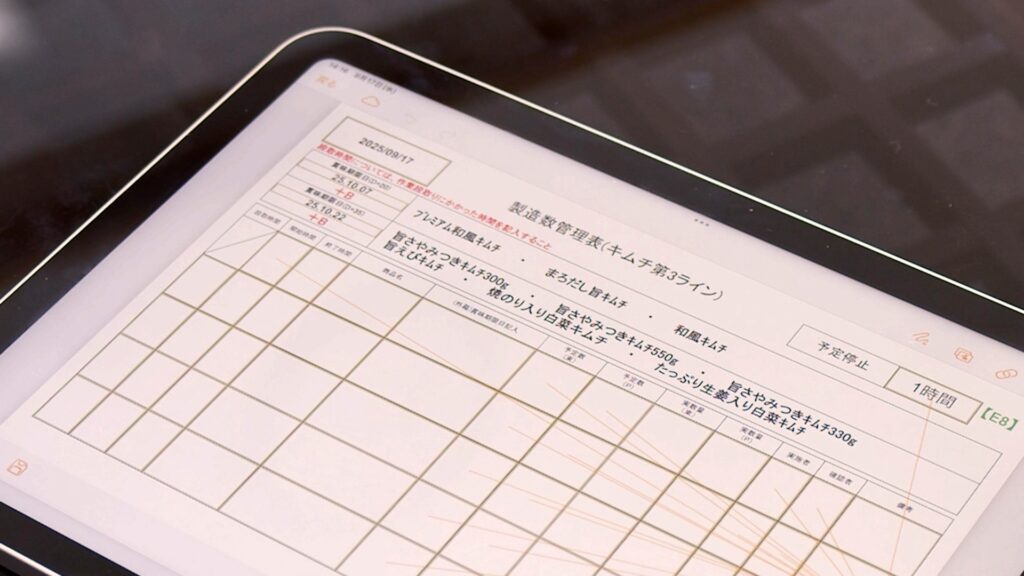 14:16 9月17日(水)
戻る
2025/09/17
段取時間については、作業段取りにかかった時間を記入すること
賞味期限日(D+20)
25.10.07
+B
賞味期限日(D+35)
25.10.22
+B
製造数管理表(キムチ第3ライン)
プレミアム和風キムチ ・ まろだし旨キムチ ・ 和風キムチ
旨さやみつきキムチ300g ・ 旨さやみつきキムチ550g ・ 旨さやみつきキムチ330g
旨えびキムチ ・ 焼のり入り白菜キムチ ・ たっぷり生姜入り白菜キムチ
予定停止 1時間 【E8】
段取時間 開始時間 終了時間 商品名 賞味期限日記入 予定数 予定数(P) 実数量 実数量(P) 実施者 確認者 備考